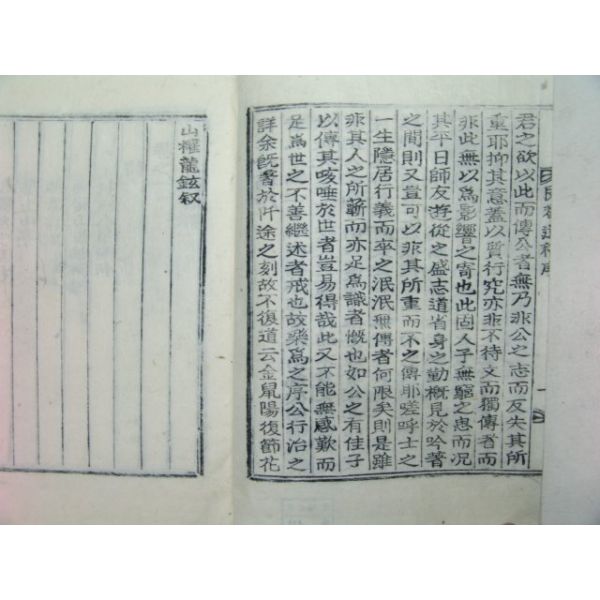 君之欲以此而傳公者無乃非公之志而反失其所
重耶抑其意蓋以質行究亦非不待文而獨傳者而
非此無以爲影響之寄也此固人子無窮之思而况
其平日師友遊從之盛志道省身之勤槪見於吟著
之間則又豈可以非其所重而不之傳耶嗟呼士之
一生隱居行義而卒之泯泯無傳者何限矣則是雖
非其人之所蘄而亦足爲識者慨也如公之有佳子
以傳其咳唾於世者豈易得哉此又不能無感歎而
足爲世之不善繼述者戒也故樂爲之序公行治之
詳余旣詟於阡途之刻故不復道云金鼠陽復節花
山權龍鉉叙